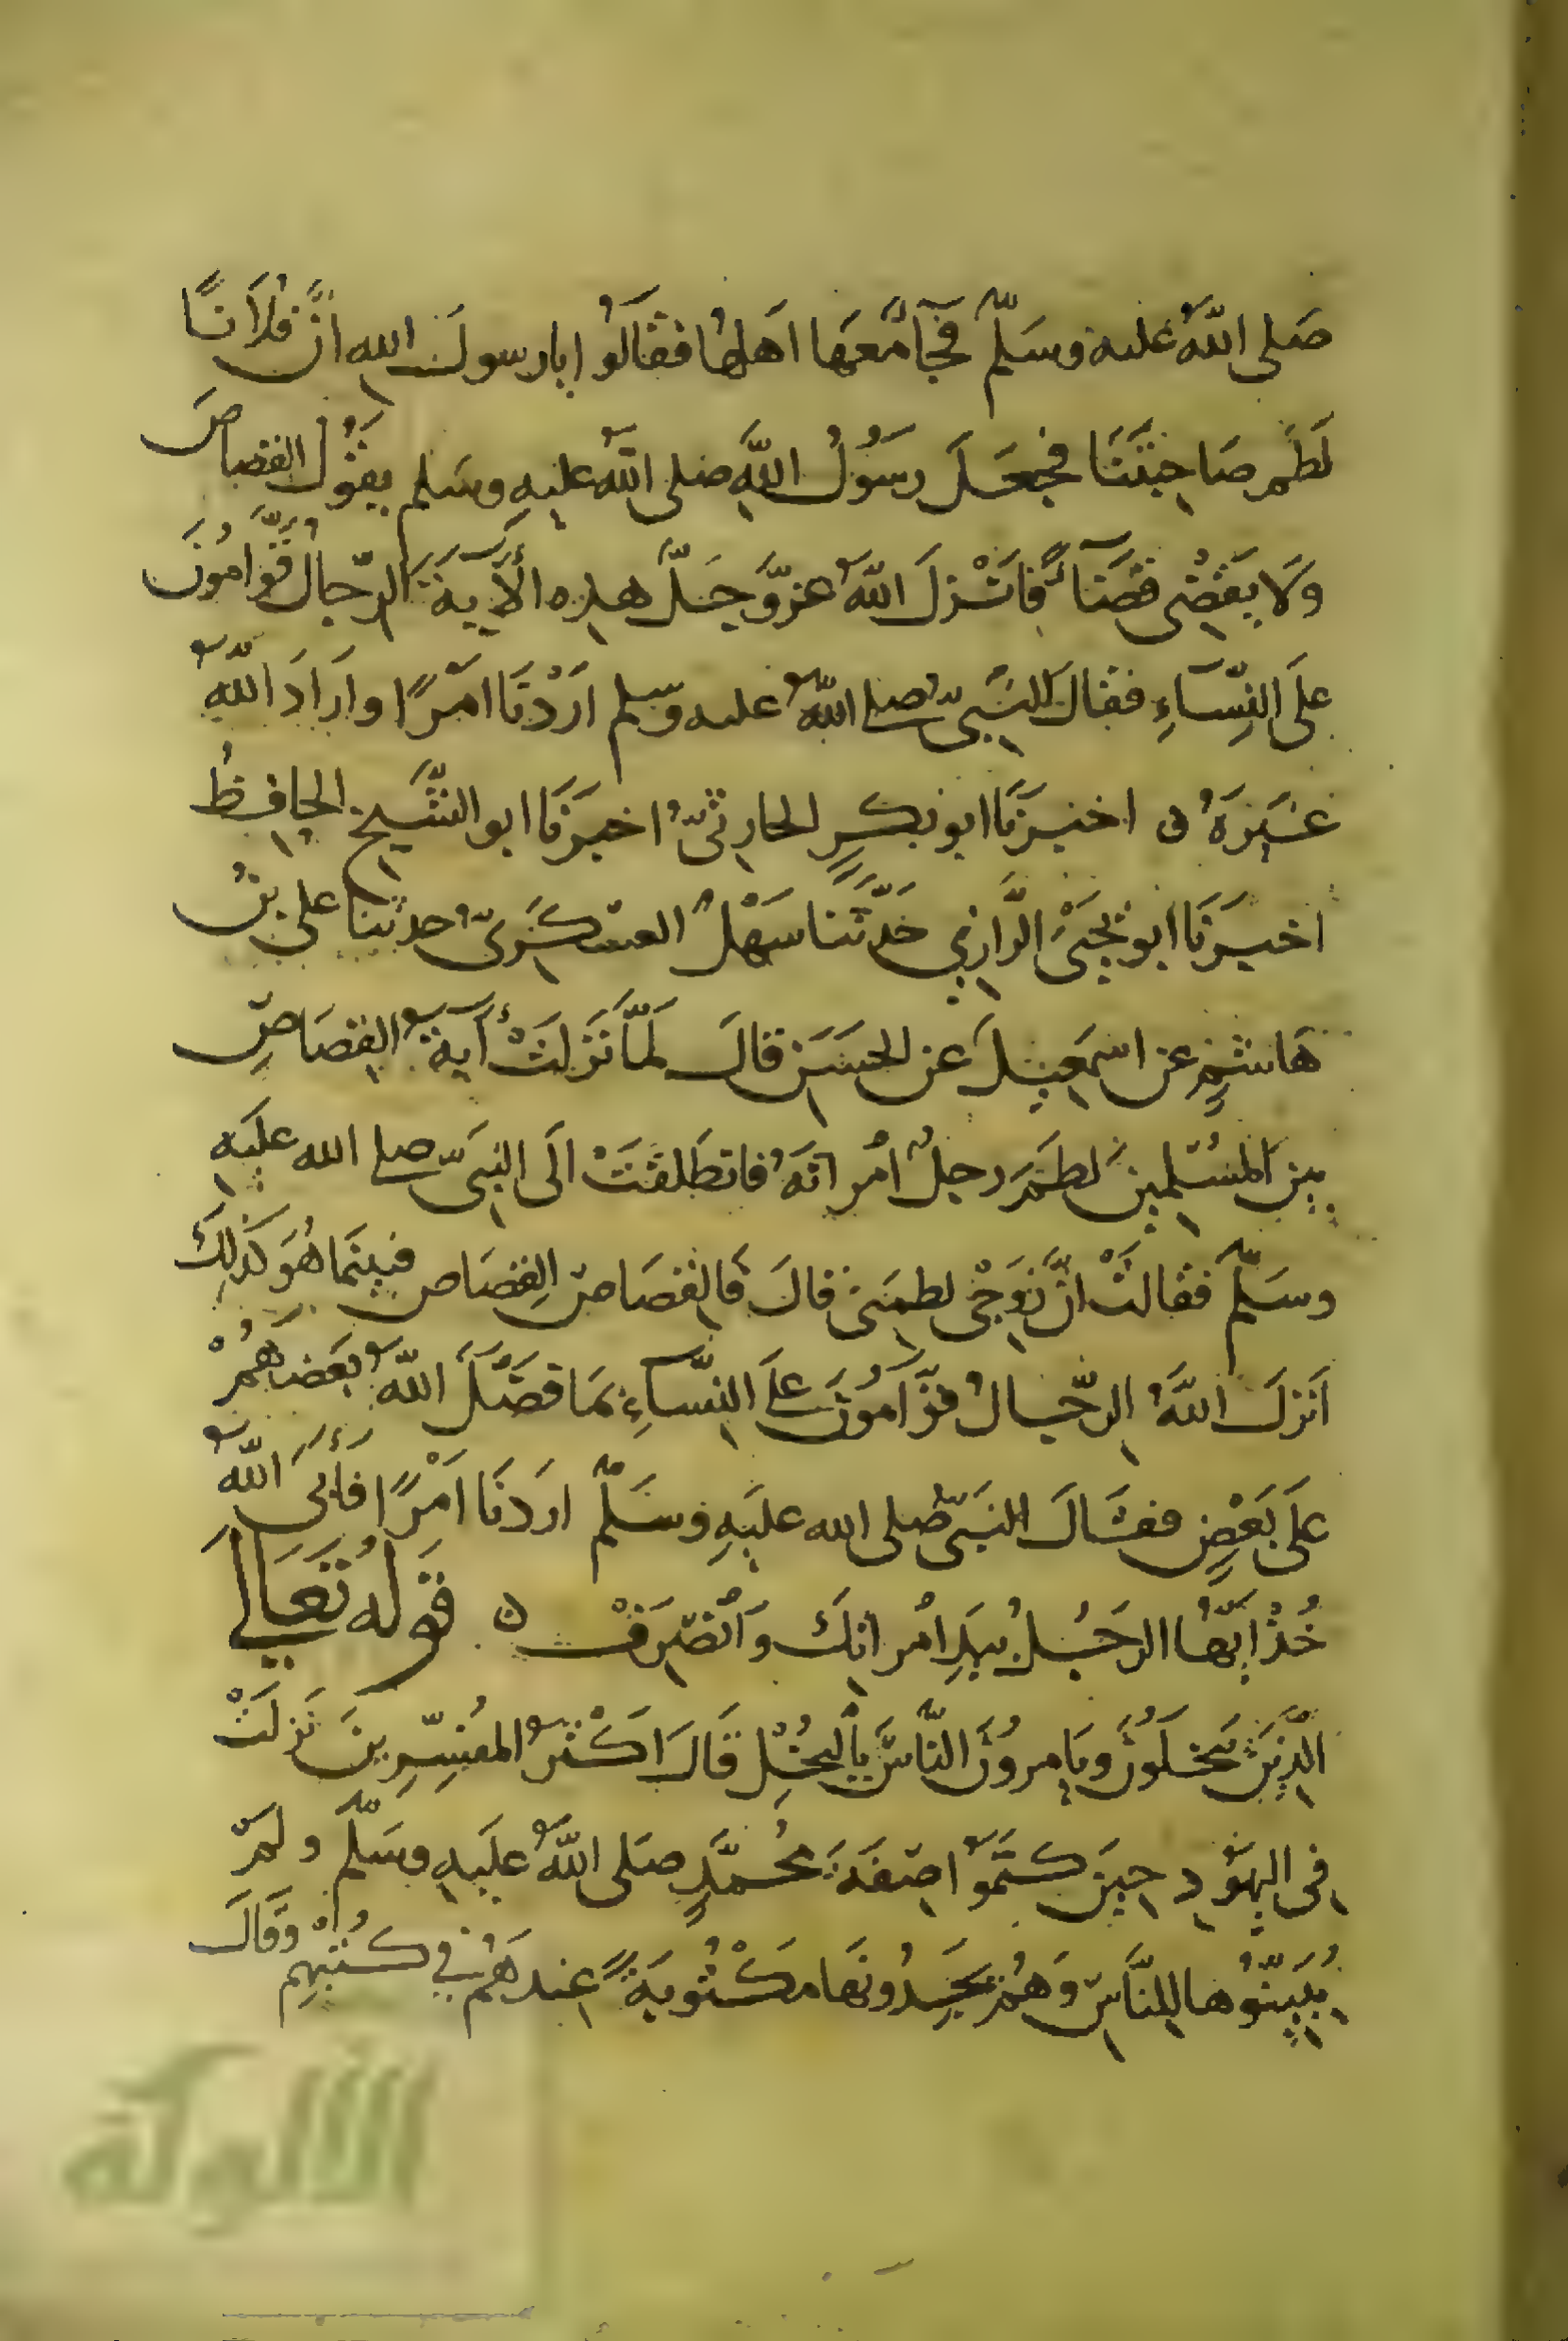 صَلى اللّٰهُ عليه وسَلّم فجَآ مَعَها اَهلها فقالوُا يا رسولَ الله انَّ فُلَانًا
لَطَم صَاحِبَتَنَا فجعَلَ رسَوُلُ اللّٰهِ صلى اللّٰه عليهِ وسَلم يقوُلُ القصاصَ
وَلَا يَقضِى قضَآءً فاَنْزلَ اللّٰه عزوَّجَلَّ هذه الأَيةَ الرّجالُ قَوَّامُونَ
عَلَى النِّسَآءِ فقال النَّبىُّ صلى اللّٰه عليه وسلم ارَدْنَا امْرًا وارَادَ اللّٰه
غَيَرَهُ ن اخبَرنَا ابو بكرٍ الحارِثىُّ اخبَرنَا ابو الشَّيخ الحافِظُ
اخبَرنَا ابو يحيَىْ الرَّازِي حَدَّثَنا سَهْلُ العسْكَرَىُّ حدثنا على بنُ
هَاشمٍ عن اسمعِيلَ عن الحسَن قالَ لَمَّا نَزَلَتْ أيةُ القصَاصِ
بينَ المسُلمينَ لطَمَ رجلُ امْراتَهُ فانطَلقَتْ الَى النبىّ صلى الله عليَهِ
وسَلّم فقالتْ انَّ زَوَجْى لطمَنىْ قالَ فَالقصَاصَ القِصَاص فبينَما هُوَ كذلِكَ
اَنزلَ اللّهُ الرّجالُ قوَّامُونَ عَلَى النِّسَآءِ بمَا فَضَّلَ اللّٰهُ بعَضَهُمْ
عَلَى بَعْضٍ فقالَ النبَىُّ صلى الله عليَهِ وسَلّم ارَدنَا امْرًا فَأَبَى اللّٰه
خُذْ ايّهَا الرجُلُ بيَدِ امْراتكَ وَانْصَرِفْ ن قَولهُ تَعَالَى
الّذِينَ يَبخَلوُنَ ويَامروُنَ النَّاسَ بِاْلبُخْلِ قَالَ اَكْثَرُ المفُسِّرِينَ نَزلَتْ
فِى اليهَوُدِ حِينَ كتَموُا صِفَةَ مُحمَّدٍ صلَى اللّٰهُ عليَهِ وسَلّم ولمْ
يُبَيّنوُها للِنَّاسِ وَهُمْ يجَدُونَها مَكْتوُبَةً عِندهَمْ فِي كتُبُهِمْ وَقالَ
الألوكة